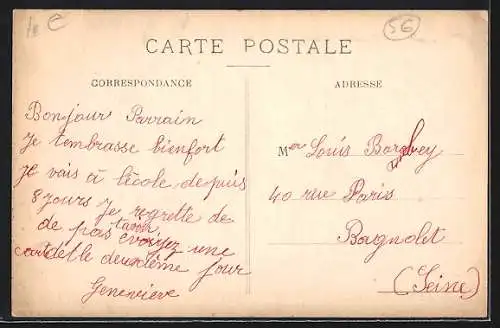 56
CARTE POSTALE
CORRESPONDANCE
Bonjour Parrain
Je tembrasse bienfort
Je vais à lécole depuis
8 jours Je regrette de
de pas tavoir
envoyez une
carte le deuxième jour
Geneviève
ADRESSE
Mer Louis
40 rue Paris
Bagnolet
(Seine)